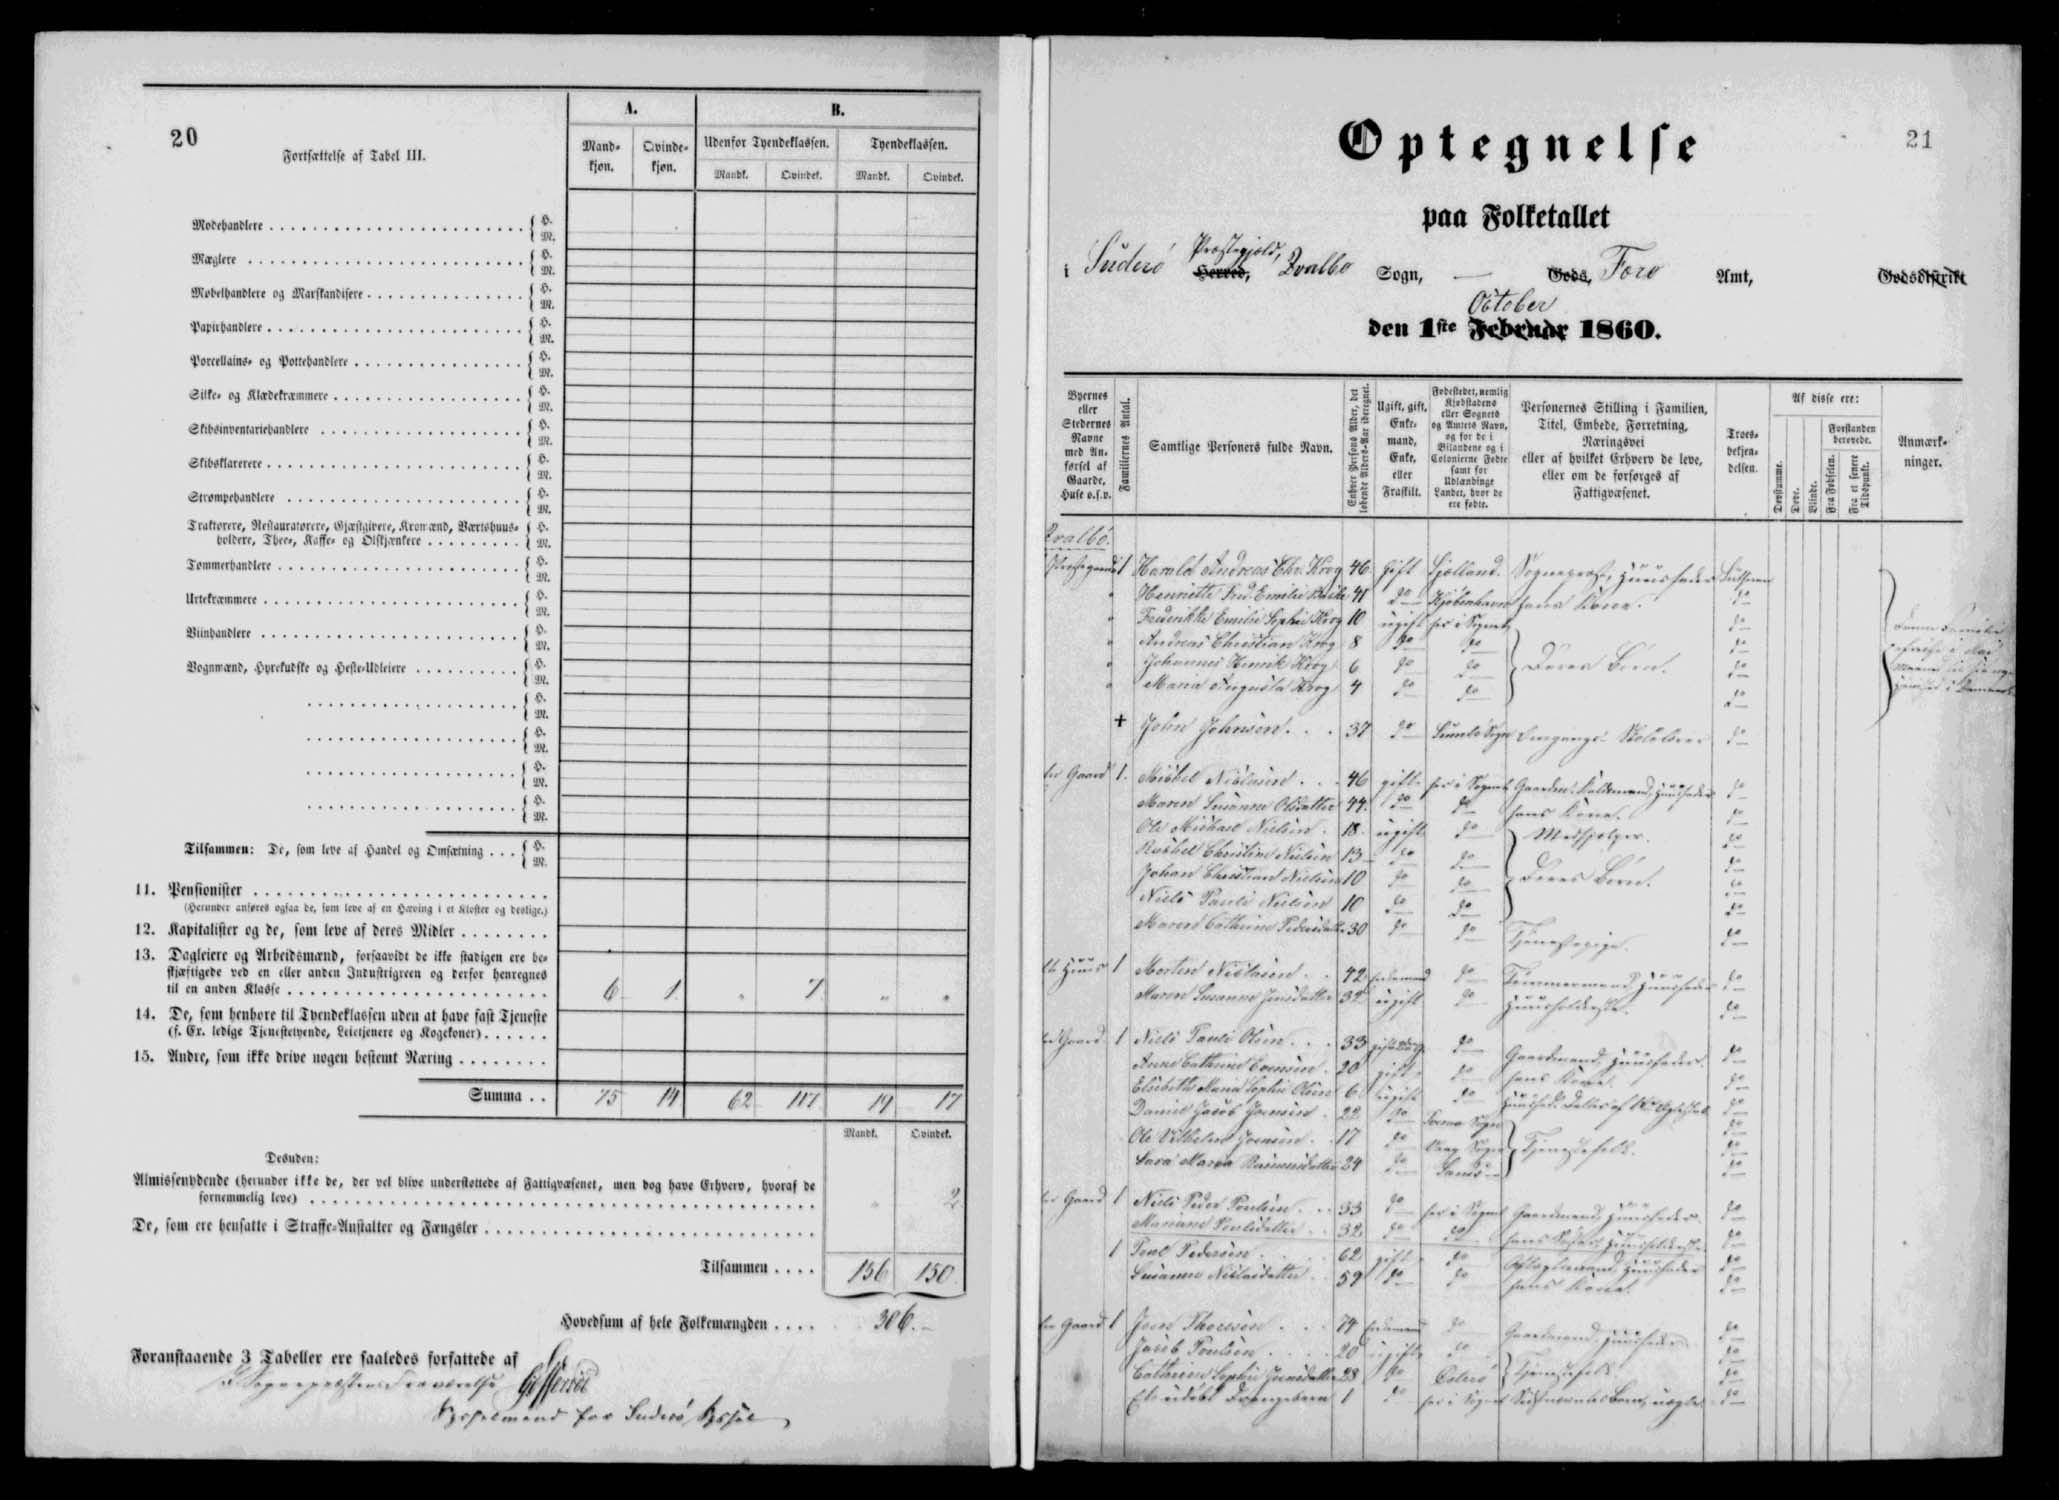 20
Fortsættelse af Tabel III.
A.
B.
Mandkjøn.
Qvindekjøn.
Udenfor Tyendeklassen.
Tyendeklassen.
Mandk.
Qvindek.
Mandk.
Qvindek.
Modehandlere { H. M.
Mæglere { H. M.
Møbelhandlere og Marskandisere { H. M.
Papirhandlere { H. M.
Porcellains- og Pottehandlere { H. M.
Silke- og Klædekræmmere { H. M.
Skibsinventariehandlere { H. M.
Skibsklarerere { H. M.
Strømpehandlere { H. M.
Traktører, Restauratører, Gjæstgivere, Kromænd, Værtshuus-
holdere, Thee-, Kaffe- og Ølskjænkere { H. M.
Tømmerhandlere { H. M.
Urtekræmmere { H. M.
Viinhandlere { H. M.
Vognmænd, Hyrekudske og Heste-Udleiere { H. M.
{ H. M.
{ H. M.
{ H. M.
{ H. M.
Tilsammen: De, som leve af Handel og Omsætning { H. M.
11. Pensionister
(Herunder anføres ogsaa de, som leve af en Hæving i et Kloster og deslige.)
12. Kapitalister og de, som leve af deres Midler
13. Dagleiere og Arbeidsmænd, forsaavidt de ikke stadigen ere be-
skjæftigede ved en eller anden Industrigreen og derfor henregnes
til en anden Klasse 6 1 " 7 " "
14. De, som henhøre til Tyendeklassen uden at have fast Tjeneste
(f. Ex. ledige Tjenestetyende, Leietjenere og Kogekoner)
15. Andre, som ikke drive nogen bestemt Næring
Summa . . 75 14 62 117 19 17
Mandk. Qvindek.
Desuden:
Almissenydende (herunder ikke de, der vel blive understøttede af Fattigvæsenet, men dog have Erhverv, hvoraf de
fornemmelig leve) " 2
De, som ere hensatte i Straffe-Anstalter og Fængsler
Tilsammen 156 150
Hovedsum af hele Folkemængden 306.
Foranstaaende 3 Tabeller ere saaledes forfattede af
I Sognepræstens Fraværelse
Sysselmand for Suderø Syssel
21
Optegnelse
paa Folketallet
i Suderø Præstegjeld, Herred, Qvalbø Sogn, — Gods, Færø Amt, Godsdistrikt
October
den 1ste Februar 1860.
Byernes eller Stedernes Navne med Anførsel af Gaarde, Huse o.s.v.
Familiernes Antal.
Samtlige Personers fulde Navn.
Enhver Persons Alder, det løbende Alders-Aar iberegnet.
Ugift, gift, Enkemand, Enke, eller Fraskilt.
Fødestedet, nemlig Kjøbstadens eller Sognets og Amtets Navn, og for de i Bilandene og i Colonierne Fødte samt for Udlændinge Landet, hvor de ere fødte.
Personernes Stilling i Familien, Titel, Embede, Forretning, Næringsvei eller af hvilket Erhverv de leve, eller om de forsørges af Fattigvæsenet.
Troesbekjendelsen.
Af disse ere:
Døvstumme.
Døve.
Blinde.
Forstanden berøvede.
Fra Fødselen.
Fra et senere Tidspunkt.
Anmærkninger.
Qvalbø.
Præstegaard 1 Harald Andreas Chr. Krog 46 gift Sjælland. Sognepræst, Huusfader Luthersk
" Henriette Fred. Emilie 41 do Kjøbenhavn hans Kone. do
" Frederikke Emilie Sophie Krog 10 ugift her i Sognet do
" Andreas Christian Krog 8 do do do
" Johannes Henrik Krog 6 do do Deres Børn. do
" Maria Augusta Krog 4 do do do
+ John Johnsen 37 do Sumbø Sogn Omgangs-Skolelærer do
Gaard 1. Michel Niclasen 46 gift her i Sognet Huusfader do
Maren Susanne Olsdatter 44 do do hans Kone. do
Ole Michael Nielsen 18 ugift do Medhjelper. do
Rachel Christine Nielsen 13 do do do
Johan Christian Nielsen 10 do do Deres Børn. do
Niels Pauli Nielsen 10 do do do
Maren Cathrine Pedersdatter 30 do do Tjenestepige. do
Huus 1 Morten Niclasen 42 Enkemand do Tømmermand, Huusfader do
Maren Susanne Joensdatter 32 ugift do Huusholderske. do
Gaard 1 Niels Pauli Olsen 33 do Gaardmand, Huusfader. do
Anne Cathrine Evensen 20 gift do hans Kone. do
Elsebeth Maria Sophie Olsen 6 ugift do do
Daniel Jacob Joensen 22 do Sogn do
Ole Vilhelm Joensen 17 do Vaag Sogn Tjenestefolk. do
Sara Maria Rasmusdatter 24 do Sands do
Gaard 1 Niels Peder Poulsen 33 do her i Sognet Gaardmand, Huusfader. do
Mariane Poulsdatter 32 do do hans Søster, Huusholderske. do
1 Poul Pedersen 62 gift do Aftægtsmand, Huusfader do
Susanne Niclasdatter 59 do do hans Kone. do
Gaard 1 Joen Thomsen 74 Enkemand do Gaardmand, Huusfader do
Jacob Poulsen 20 ugift do do
Cathrine Sophie Joensdatter 28 do Østerø Tjenestefolk. do
Et udøbt Drengebarn 1 do her i Sognet do